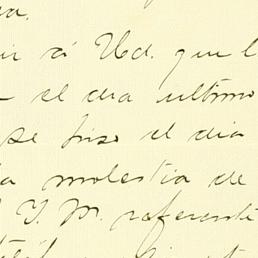 a.
ir á Ud. que l
el dia ultimo
se puso el dia
a molestia de
Y. M. referente